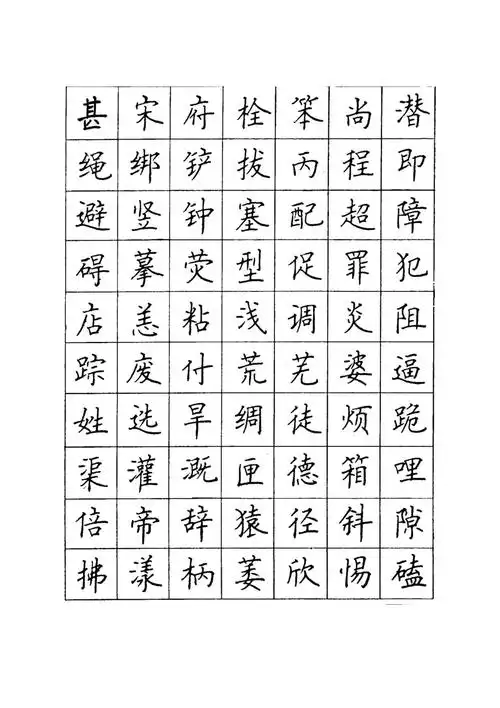 甚宋府栓笨尚潜
绳绑铲拔丙程即
避竖钟塞配超障
碍摹荧型促罪犯
店恙粘浅调炎阻
踪废付荒芜婆逼
姓选旱绸徒烦跪
渠灌溉匣德箱哩
倍帝辞猿径斜隙
拂漾柄萎欣惕磕